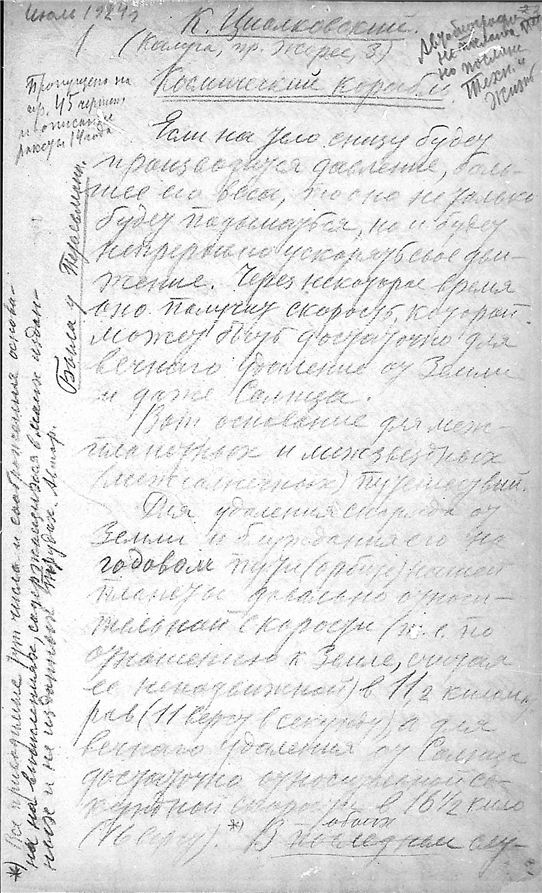 Июль 1924 г.
К. Циолковский.
(Калуга, пр. Жореса, 3)
Космический корабль.
не
но послано
Техн. и
Жизнь
Пропущено на
стр. 45 чертеж
и описание
ракеты 14 года
Была у Перельмана.
Если на тело снизу будет
производится давление, боль-
шее его веса, то оно не только
будет подыматься, но и будет
непрерывно ускорять свое дви-
жение. Через некоторое время
оно получит скорость, которой
может быть достаточно для
вечного удаления от Земли
и даже Солнца.
Вот основание для меж-
планетных и межзвездных
(межсолнечных) путешествий.
Для удаления снаряда от
Земли и блуждания его на
годовом пути (орбите) нашей
планеты довольно относи-
тельной скорости (т.е. по
отношению к Земле, считая
ее неподвижной) в 11 1/2 килом.
(11 верст в секунду), а для
вечного удаления от Солнца
достаточно относительной се-
кундной скорости в 16 1/2 кило
(16 верст). *) В последнем слу-
*) Все приводимые тут числа и соображения основа-
ны на вычислениях, содержащихся в моих издан-
ных и не изданных трудах. Автор.